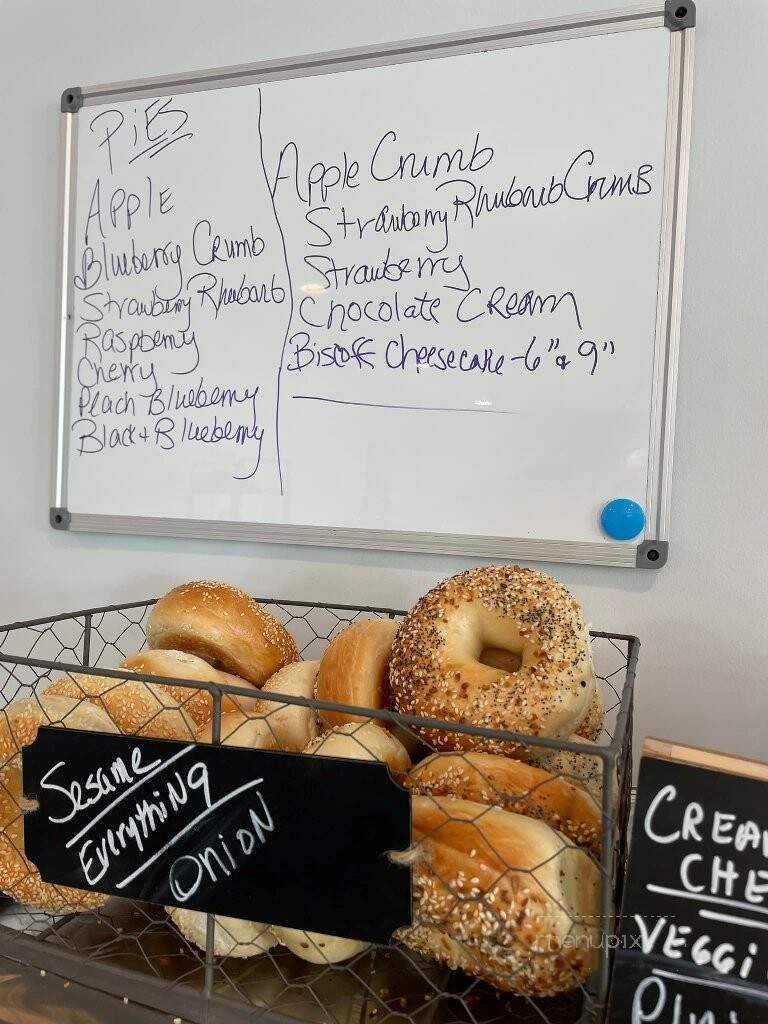 PiES
Apple
Blueberry Crumb
Strawberry Rhubarb
Raspberry
Cherry
Peach Blueberry
Black + Blueberry
Apple Crumb
Strawberry Rhubarb Crumb
Strawberry
Chocolate Cream
Biscoff Cheesecake - 6" & 9"
Sesame
Everything
Onion
CREA
CHE
VEGGi
menupix